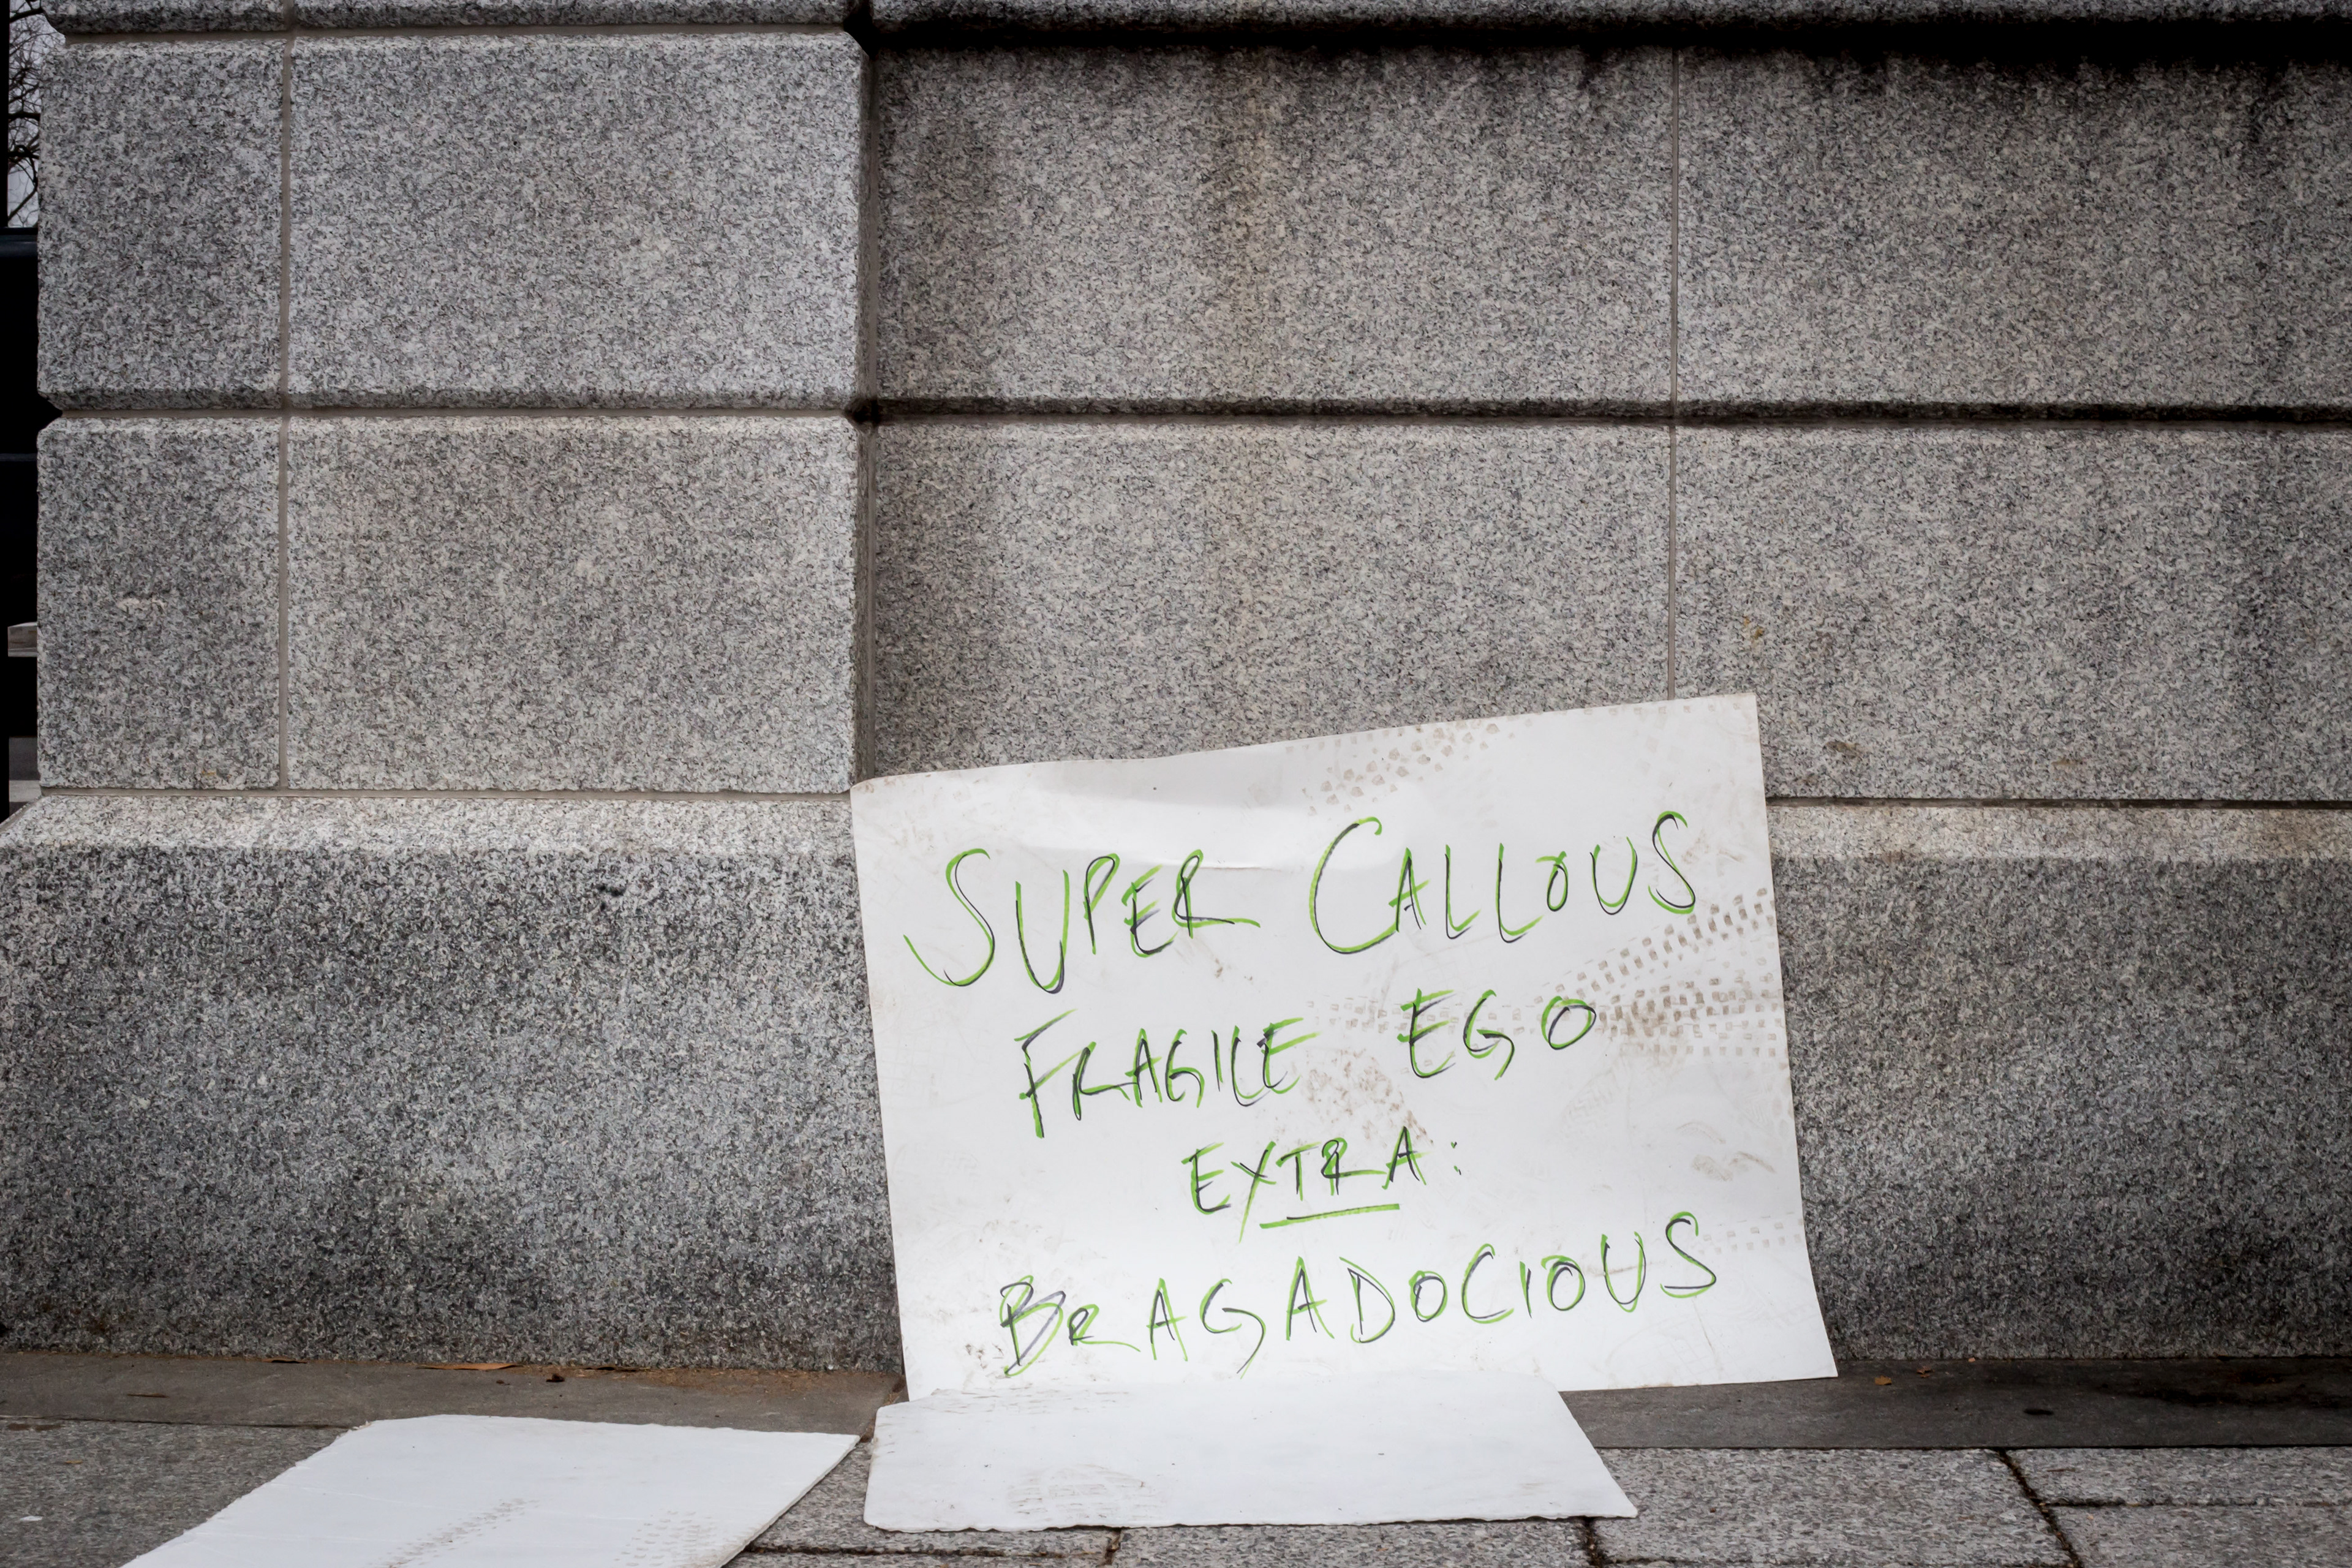 SUPER CALLOUS
FRAGILE EGO
EXTRA:
BRAGADOCIOUS